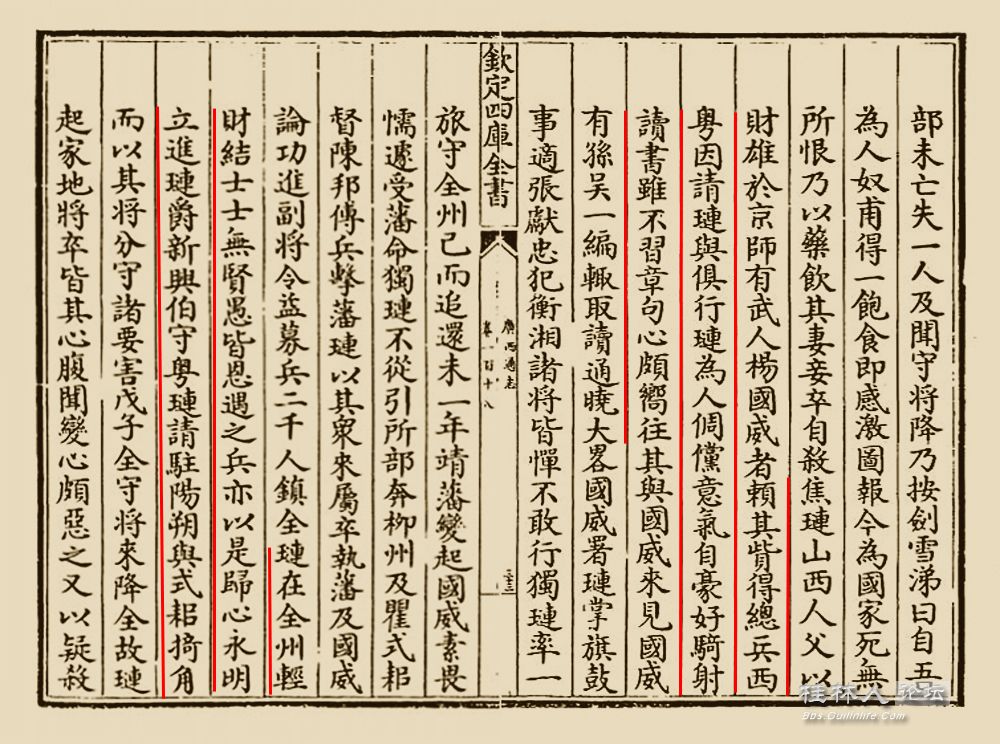 部未亡失一人及聞守將降乃按劍雪涕曰自吾
為人奴甫得一飽食即感激圖報今為國家死無
所恨乃以藥飲其妻妾卒自殺焦璉山西人父以
財雄於京師有武人楊國威者賴其貲得總兵西
粤因請璉與俱行璉為人倜儻意氣自豪好騎射
讀書雖不習章句心頗嚮往其與國威來見國威
有孫吳一編輙取讀通曉大畧國威署璉掌旗鼓
事適張獻忠犯衡湘諸將皆憚不敢行獨璉率一
欽定四庫全書
廣西通志
卷一百十八
三
旅守全州已而追還未一年靖藩變起國威素畏
懦遽受藩命獨璉不從引所部奔柳州及瞿式耜
督陳邦傅兵擊藩璉以其衆來屬卒執藩及國威
論功進副將令益募兵二千人鎮全璉在全州輕
財結士士無賢愚皆恩遇之兵亦以是歸心永明
立進璉爵新興伯守粤璉請駐陽朔與式耜掎角
而以其將分守諸要害戊子全守將來降全故璉
起家地將卒皆其心腹聞變心頗惡之又以疑殺
桂林人论坛
Bbs.Guilinlife.Com